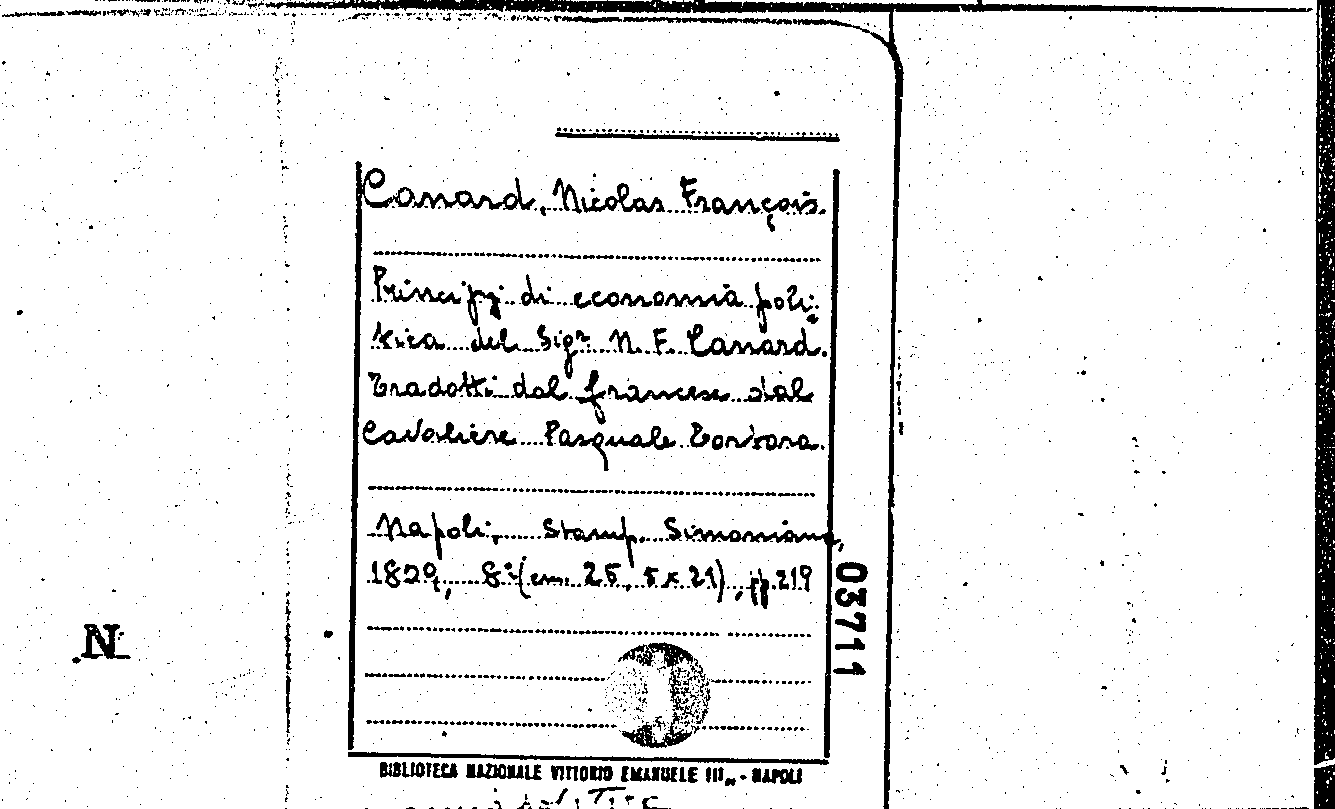 Canard, Nicolas François.
Principj di economia poli-
tica del Sigr N. F. Canard.
Tradotti dal francese dal
Cavaliere Pasquale Borrara.
Napoli, Stamp. Simoniana,
1829, 8º (cm. 25, 5 x 21), pp. 219
03711
N
BIBLIOTECA NAZIONALE VITTORIO EMANUELE III - NAPOLI